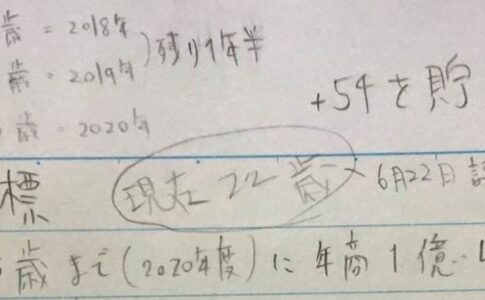 歳 = 2018年
歳 = 2019年 ) 残り1年半
歳 = 2020年
+54を貯
標 現在22歳 6月22日
歳まで(2020年度)に年商1億